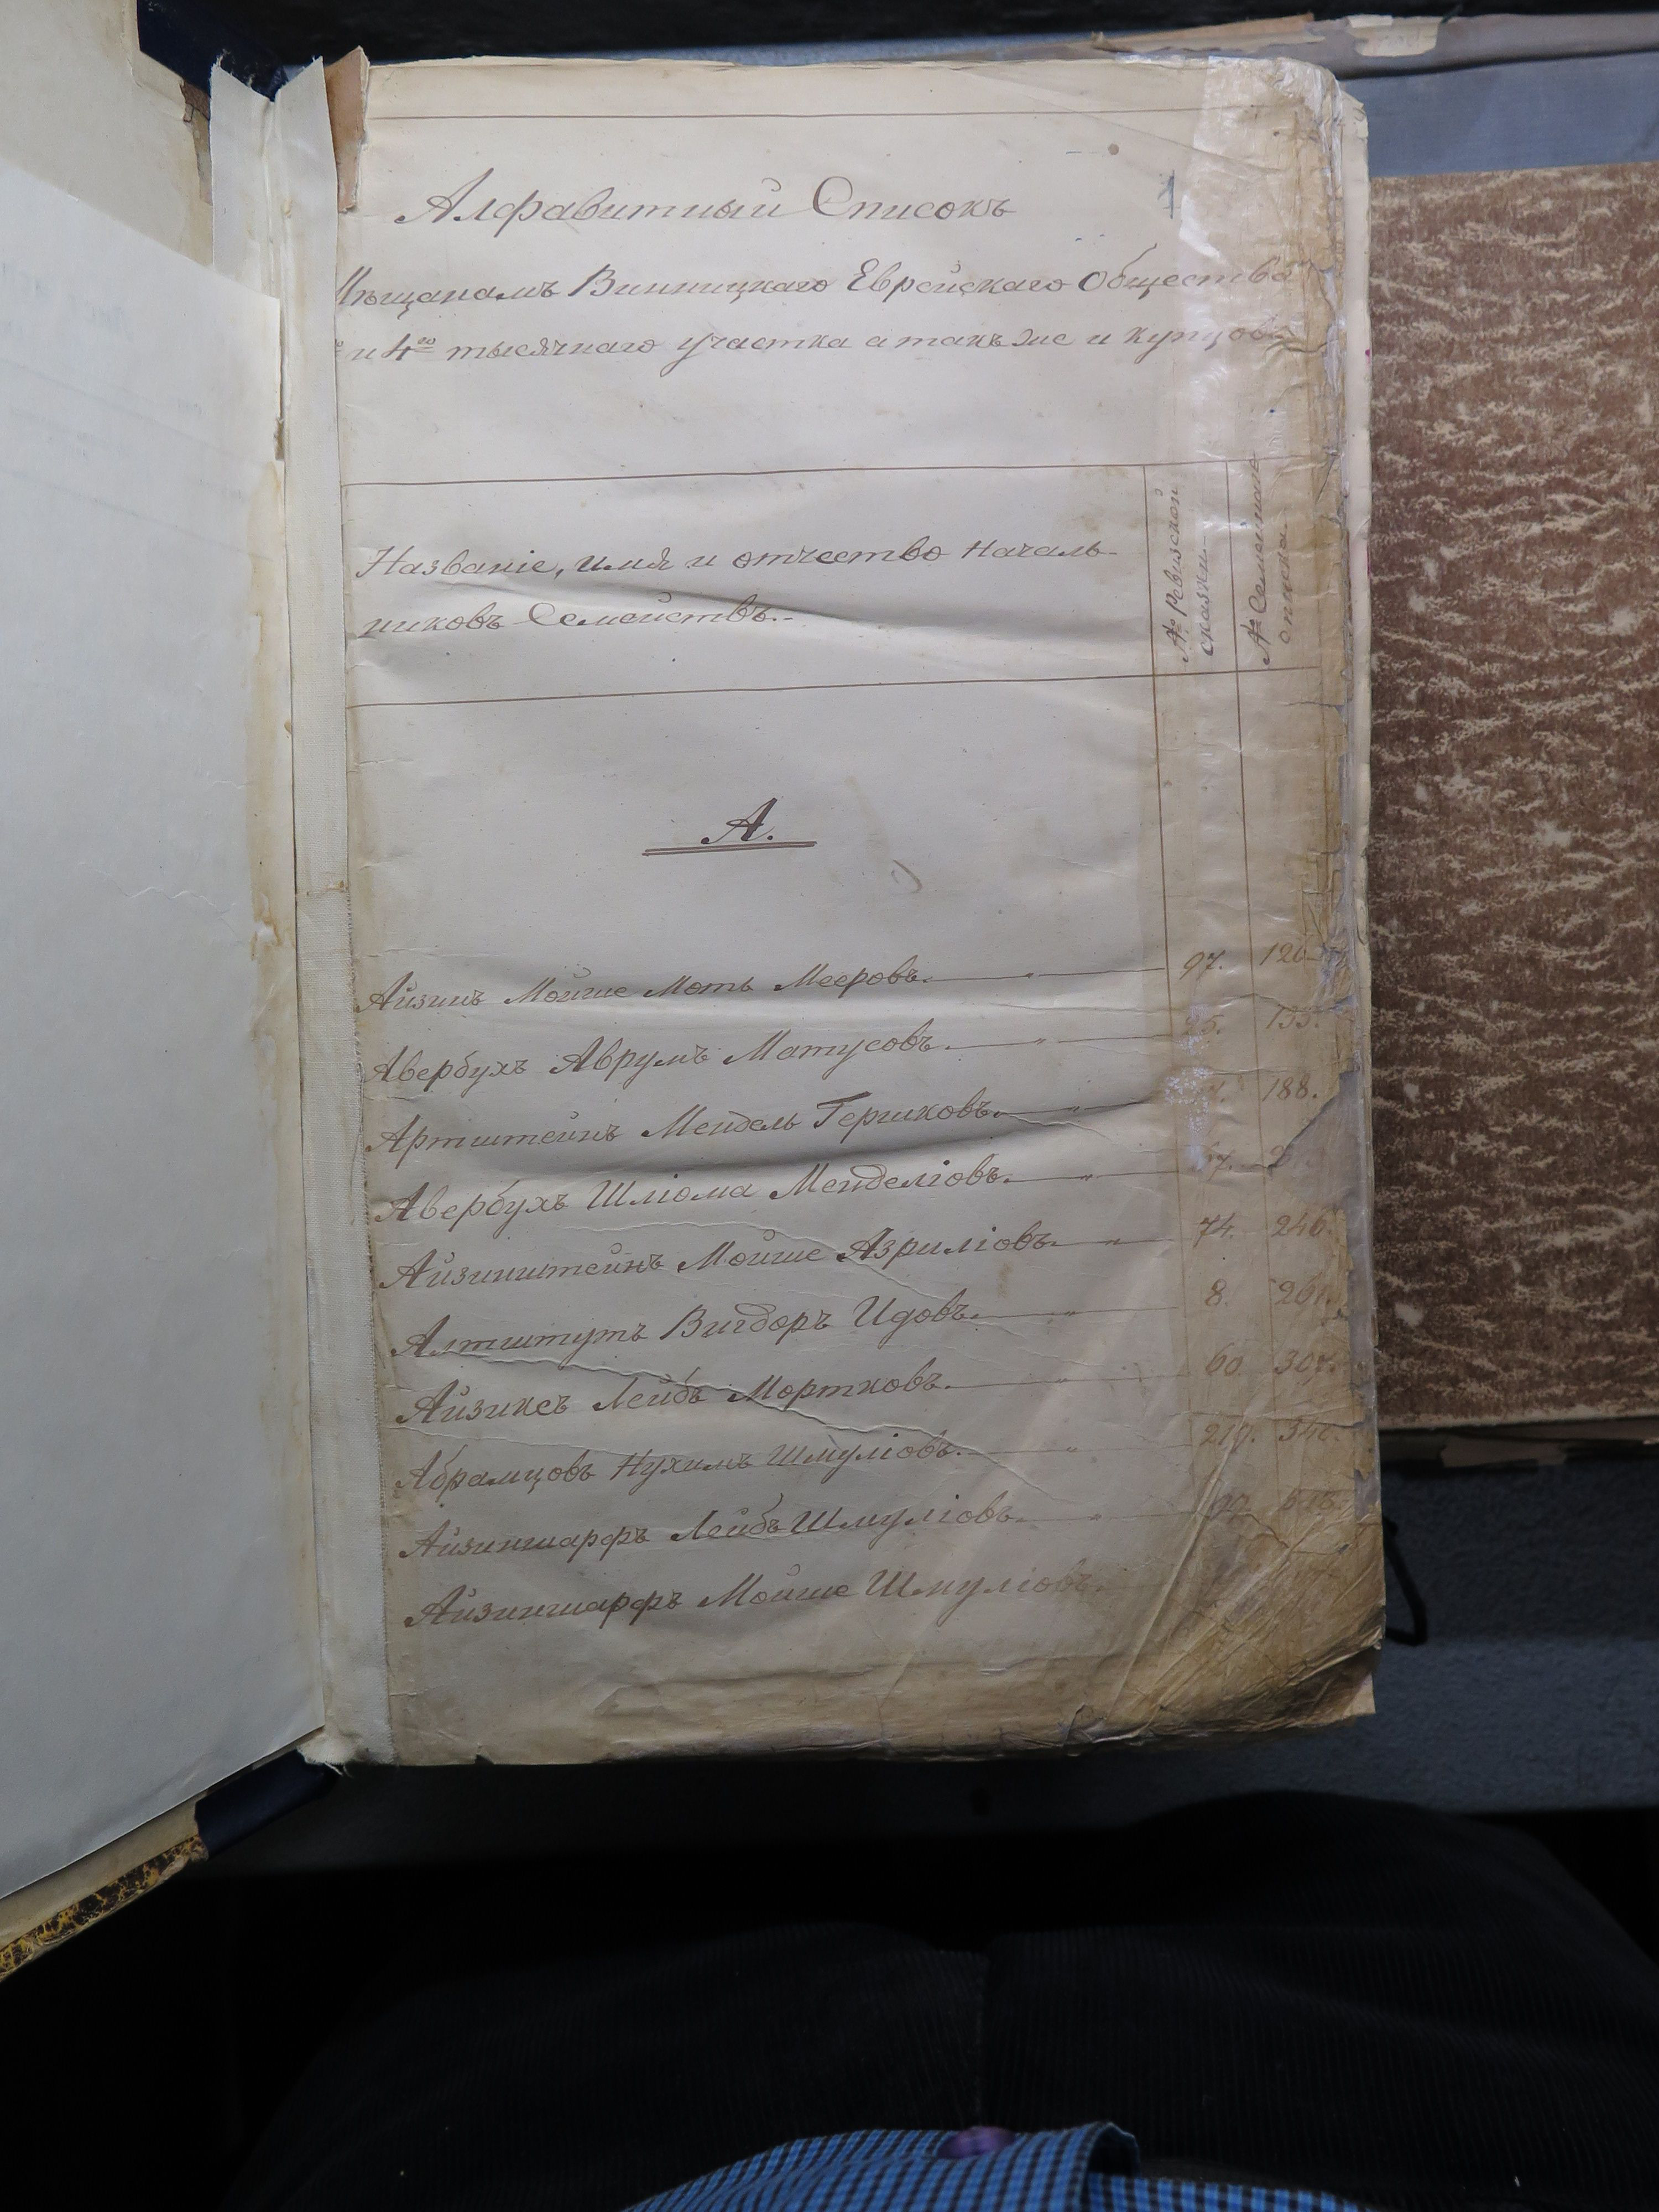 Алфавитный Списокъ
Мѣщанамъ Винницкаго Еврейскаго Общества
и 4го тысячнаго участка а такъ же и купцовъ
Названіе, имя и отчество Началь-
никовъ Семействъ.
№ Ревизской
сказки
№ Семейнаго
списка
А.
Айзинъ Мойше Моть Мееровъ. " 97.
Авербухъ Аврумъ Матусовъ. " 133.
Артштейнъ Мендель Гершковъ. " 188.
Авербухъ Шліома Менделіовъ. "
Айзинштейнъ Мойше Азриліовъ. " 74. 246.
Алтштутъ Вигдоръ Идовъ. " 8.
Айзиксъ Лейбъ Мортковъ. " 60
Абрамцовъ Нухимъ Шмуліовъ. "
Айзиншарфъ Лейбъ Шмуліовъ. "
Айзиншарфъ Мойше Шмуліовъ.